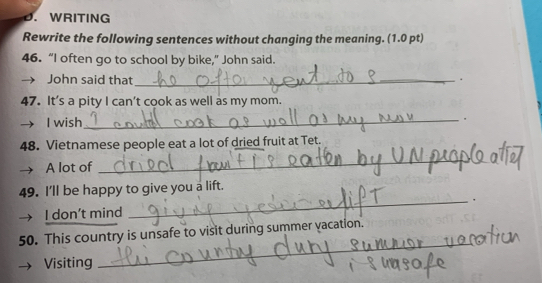 D. WRITING
Rewrite the following sentences without changing the meaning. (1.0 pt)
46. "I often go to school by bike," John said.
→ John said that he often went to s.
47. It's a pity I can't cook as well as my mom.
→ I wish I could cook as well as my mom.
48. Vietnamese people eat a lot of dried fruit at Tet.
→ A lot of dried fruit is eaten by VN people at Tet
49. I'll be happy to give you a lift.
→ I don't mind giving you a lift.
50. This country is unsafe to visit during summer vacation.
→ Visiting this country during summer vacation
is unsafe